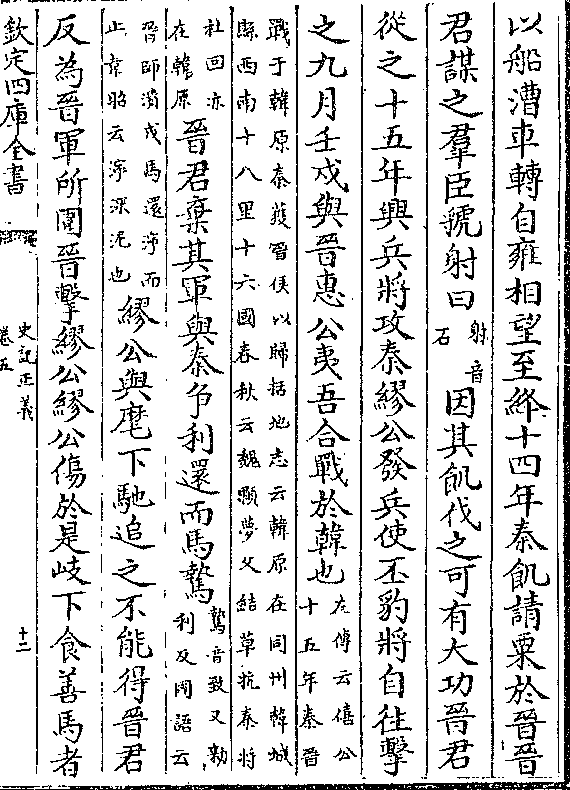 以船漕車轉自雍相望至絳十四年秦飢請粟於晉晉
君謀之羣臣虢射曰
射音
石
因其飢伐之可有大功晉君
從之十五年興兵將攻秦繆公發兵使丕豹將自往擊
之九月壬戌與晉惠公夷吾合戰於韓也
左傳云僖公
十五年秦晉
戰于韓原秦獲晉侯以歸括地志云韓原在同州韓城
縣西南十八里十六國春秋云魏顆夢父結草抗秦將
杜回亦
在韓原
晉君棄其軍與秦争利還而馬騺
騺音致又勅
利反國語云
晉師潰戎馬還濘而
止韋昭云濘深泥也
繆公與麾下馳追之不能得晉君
反為晉軍所圍晉擊繆公繆公傷於是岐下食善馬者
欽定四庫全書
史記正義
卷五
十二